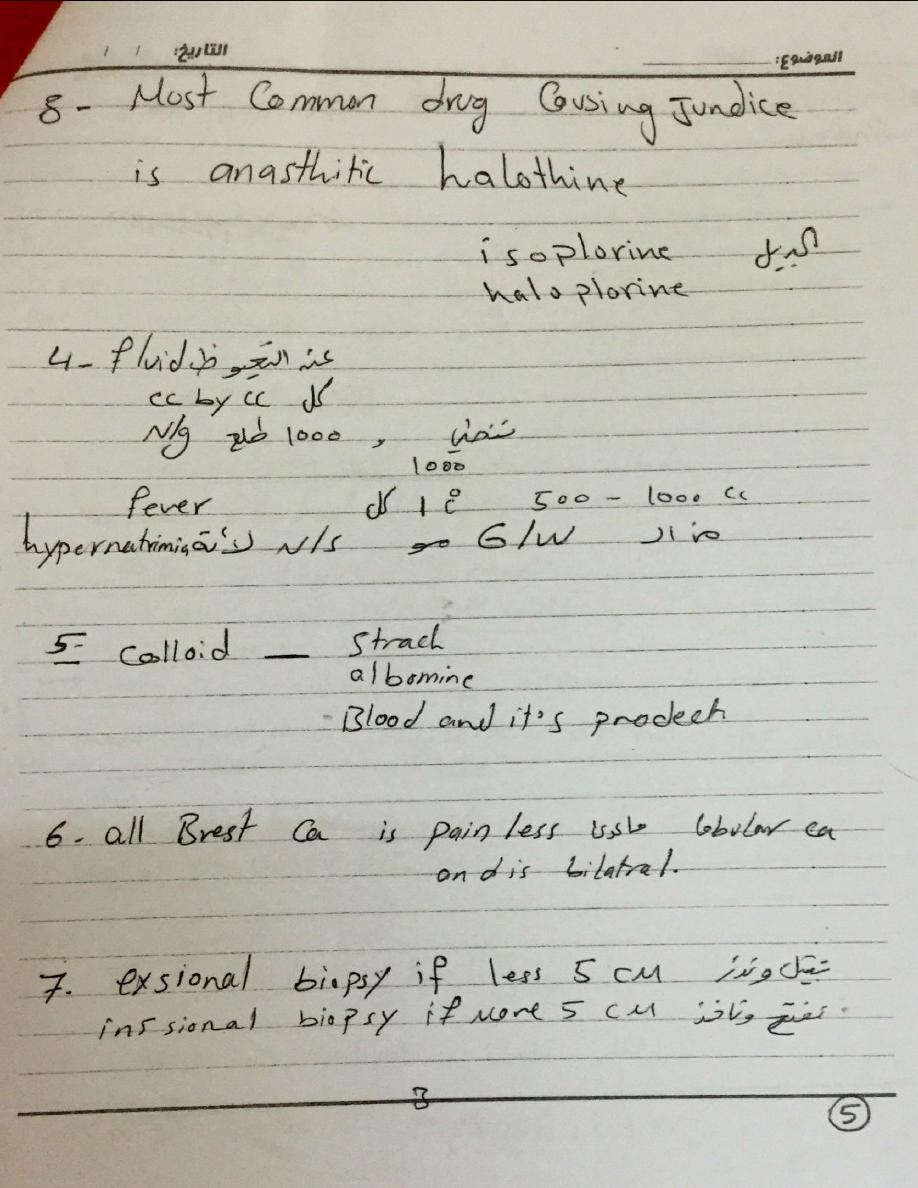 التاريخ: / /
الموضوع:
8- Most Common drug Causing Jundice
is anasthitic halothine
isoplorine البديل
haloplorine
4- fluid عند التعويض
cc by cc كل
N/g طلع 1000 و تنطي
1000
fever كل 1 500 - 1000 cc
hypernatrimia N/S مو G/W من ال
5- Colloid — Strach
albomine
- Blood and it's prodech
6- all Brest Ca is painless ماعدا lobular ca
and is bilatral.
7. exsional biopsy if less 5 CM تشيل
inssional biopsy if more 5 CM تفتح وتاخذ
3
5